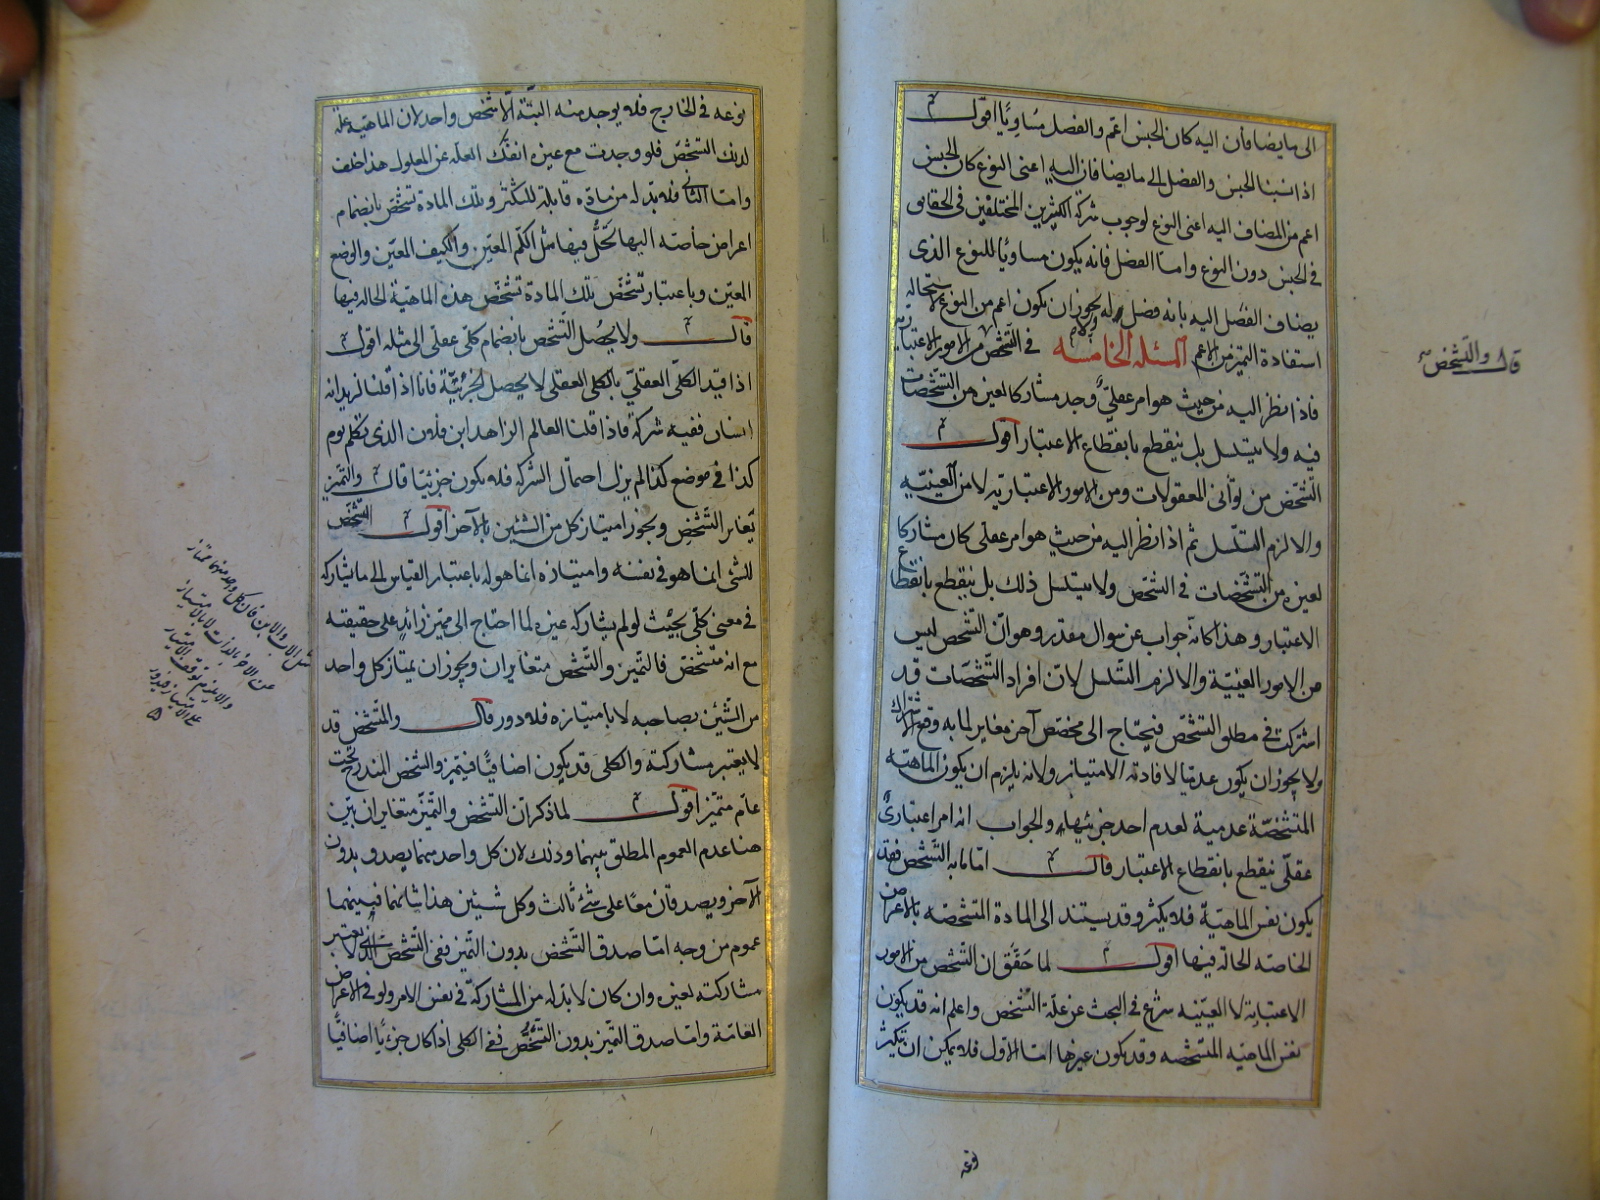 الى ما يضافان اليه كان الجنس اعم والفصل مساويا اقول
اذا نسبنا الجنس والفصل الى ما يضافان اليه اعنى النوع كان الجنس
اعم من المضاف اليه اعنى النوع لوجوب شركة الكثيرين المختلفين فى الحقايق
فى الجنس دون النوع واما الفصل فانه يكون مساويا للنوع الذى
يضاف الفصل اليه بانه فصل له ولا يجوز ان يكون اعم من النوع لاستحالة
استفادة التميز من الاعم المسئلة الخامسة فى التشخص من الامور الاعتبارية
فاذا نظر اليه من حيث هو امر عقلى وجد مشاركا لغيره من التشخصات
فيه ولا يتسلسل بل ينقطع بانقطاع الاعتبار اقول
التشخص من ثوانى المعقولات ومن الامور الاعتبارية لا من العينية
والا لزم التسلسل ثم اذا نظر اليه من حيث هو امر عقلى كان مشاركا
لغيره من التشخصات فى التشخص ولا يتسلسل ذلك بل ينقطع بانقطاع
الاعتبار وهذا كانه جواب عن سوال مقدر وهو ان التشخص ليس
من الامور العينية والا لزم التسلسل لان افراد التشخصات قد
اشتركت فى مطلق التشخص فيحتاج الى مخصص آخر مغاير لما به وقع الاشتراك
ولا يجوز ان يكون عدميا لافادته الامتياز ولانه يلزم ان يكون الماهية
المتشخصة عدمية لعدم احد جزئيها والجواب انه امر اعتبارى
عقلى ينقطع بانقطاع الاعتبار قال اما ما به التشخص فقد
يكون نفس الماهية فلا يكثر وقد يستند الى المادة المتشخصة بالاعراض
الخاصة الحالة فيها اقول لما حقق ان التشخص من الامور
الاعتبارية لا العينية شرع فى البحث عن علة التشخص واعلم انه قد يكون
نفس الماهية المتشخصة وقد يكون غيرها اما الاول فلا يمكن ان يتكثر
قال والتشخص
نوعه
نوعه فى الخارج فلا يوجد منه البتة الا شخص واحد لان الماهية علة
لذلك التشخص فلو وجدت مع غيره انفك العلة عن المعلول هذا خلف
واما الثانى فلا بد له من مادة قابلة للتكثر وتلك المادة تشخص بانضمام
اعراض خاصة اليها تحل فيها مثل الكم المعين والكيف المعين والوضع
المعين وباعتبار تشخص تلك المادة تشخص هذه الماهية الحالة فيها
قال ولا يحصل التشخص بانضمام كلى عقلى الى مثله اقول
اذا قيد الكلى العقلى بالكلى العقلى لا يحصل الجزئية فانا اذا قلنا لزيد انه
انسان ففيه شركة فاذا قلنا العالم الزاهد ابن فلان الذى تكلم يوم
كذا فى موضع كذا لم يزل احتمال الشركة فلا يكون جزئيا قال والتميز
يغاير التشخص ويجوز امتياز كل من الشيئين بالآخر اقول التشخص
للشئ انما هو فى نفسه وامتيازه انما هو له باعتبار القياس الى ما يشاركه
فى معنى كلى بحيث لو لم يشاركه غيره لما احتاج الى مميز زائد على حقيقته
مع انه متشخص فالتميز والتشخص متغايران ويجوز ان يمتاز كل واحد
من الشيئين بصاحبه لا بامتيازه فلا دور قال والمتشخص قد
لا يعتبر مشاركته والكلى قد يكون اضافيا فيتميز والشخص المندرج تحت
عام متميز اقول لما ذكر ان التشخص والتميز متغايران بين
هنا عدم العموم المطلق بينهما وذلك لان كل واحد منهما يصدق بدون
الآخر ويصدقان معا على شئ ثالث وكل شيئين هذا شانهما فبينهما
عموم من وجه اما صدق التشخص بدون التميز ففى التشخص الذى لا يعتبر
مشاركته لغيره وان كان لا بد له من المشاركة فى نفس الامر ولو فى الاعراض
العامة واما صدق التميز بدون التشخص ففى الكلى اذا كان جزئيا اضافيا
مثل الاب والابن فان كل واحد منهما ممتاز
عن الآخر بالذات لا بالامتياز
والا يلزم توقف الامتياز
على الامتياز فيدور